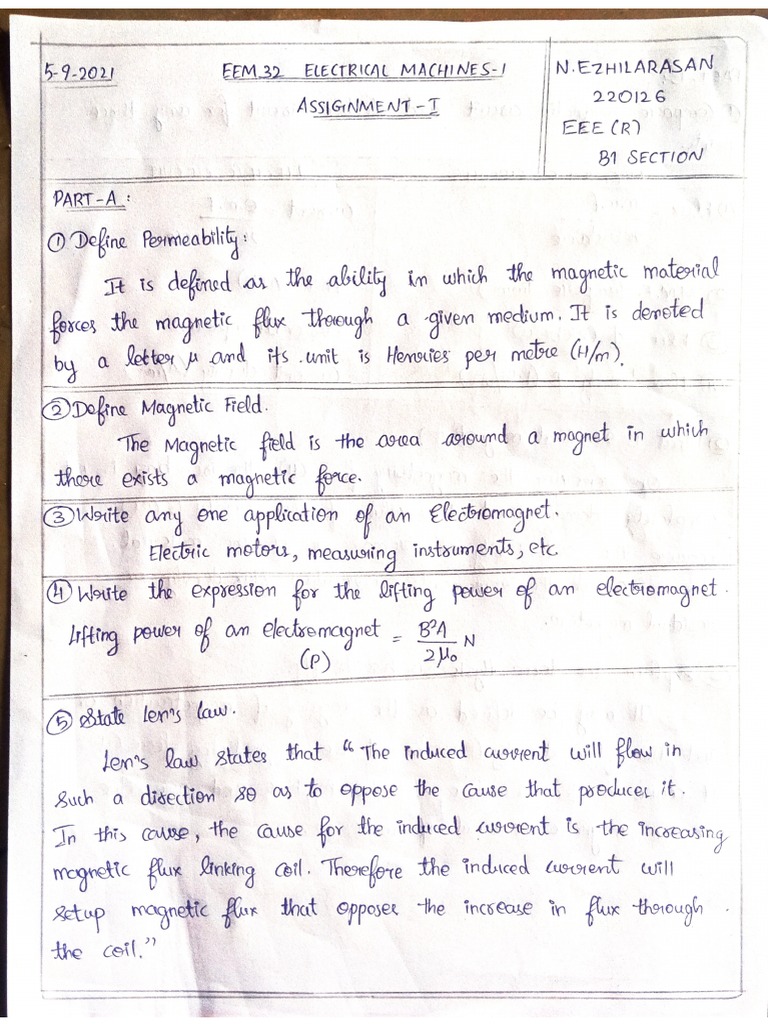 5-9-2021
EEM32 ELECTRICAL MACHINES-I
ASSIGNMENT-I
N.EZHILARASAN
220126
EEE (R)
B1 SECTION
PART-A:
① Define Permeability:
It is defined as the ability in which the magnetic material
forces the magnetic flux through a given medium. It is denoted
by a letter μ and its unit is Henries per metre (H/m).
② Define Magnetic Field.
The Magnetic field is the area around a magnet in which
there exists a magnetic force.
③ Write any one application of an Electromagnet.
Electric motors, measuring instruments, etc.
④ Write the expression for the lifting power of an electromagnet.
Lifting power of an electromagnet (P) = B²A / 2μ₀ N
⑤ State Len's Law.
Len's law states that "The induced current will flow in
such a direction so as to oppose the cause that produces it.
In this cause, the cause for the induced current is the increasing
magnetic flux linking coil. Therefore the induced current will
setup magnetic flux that opposes the increase in flux through
the coil."